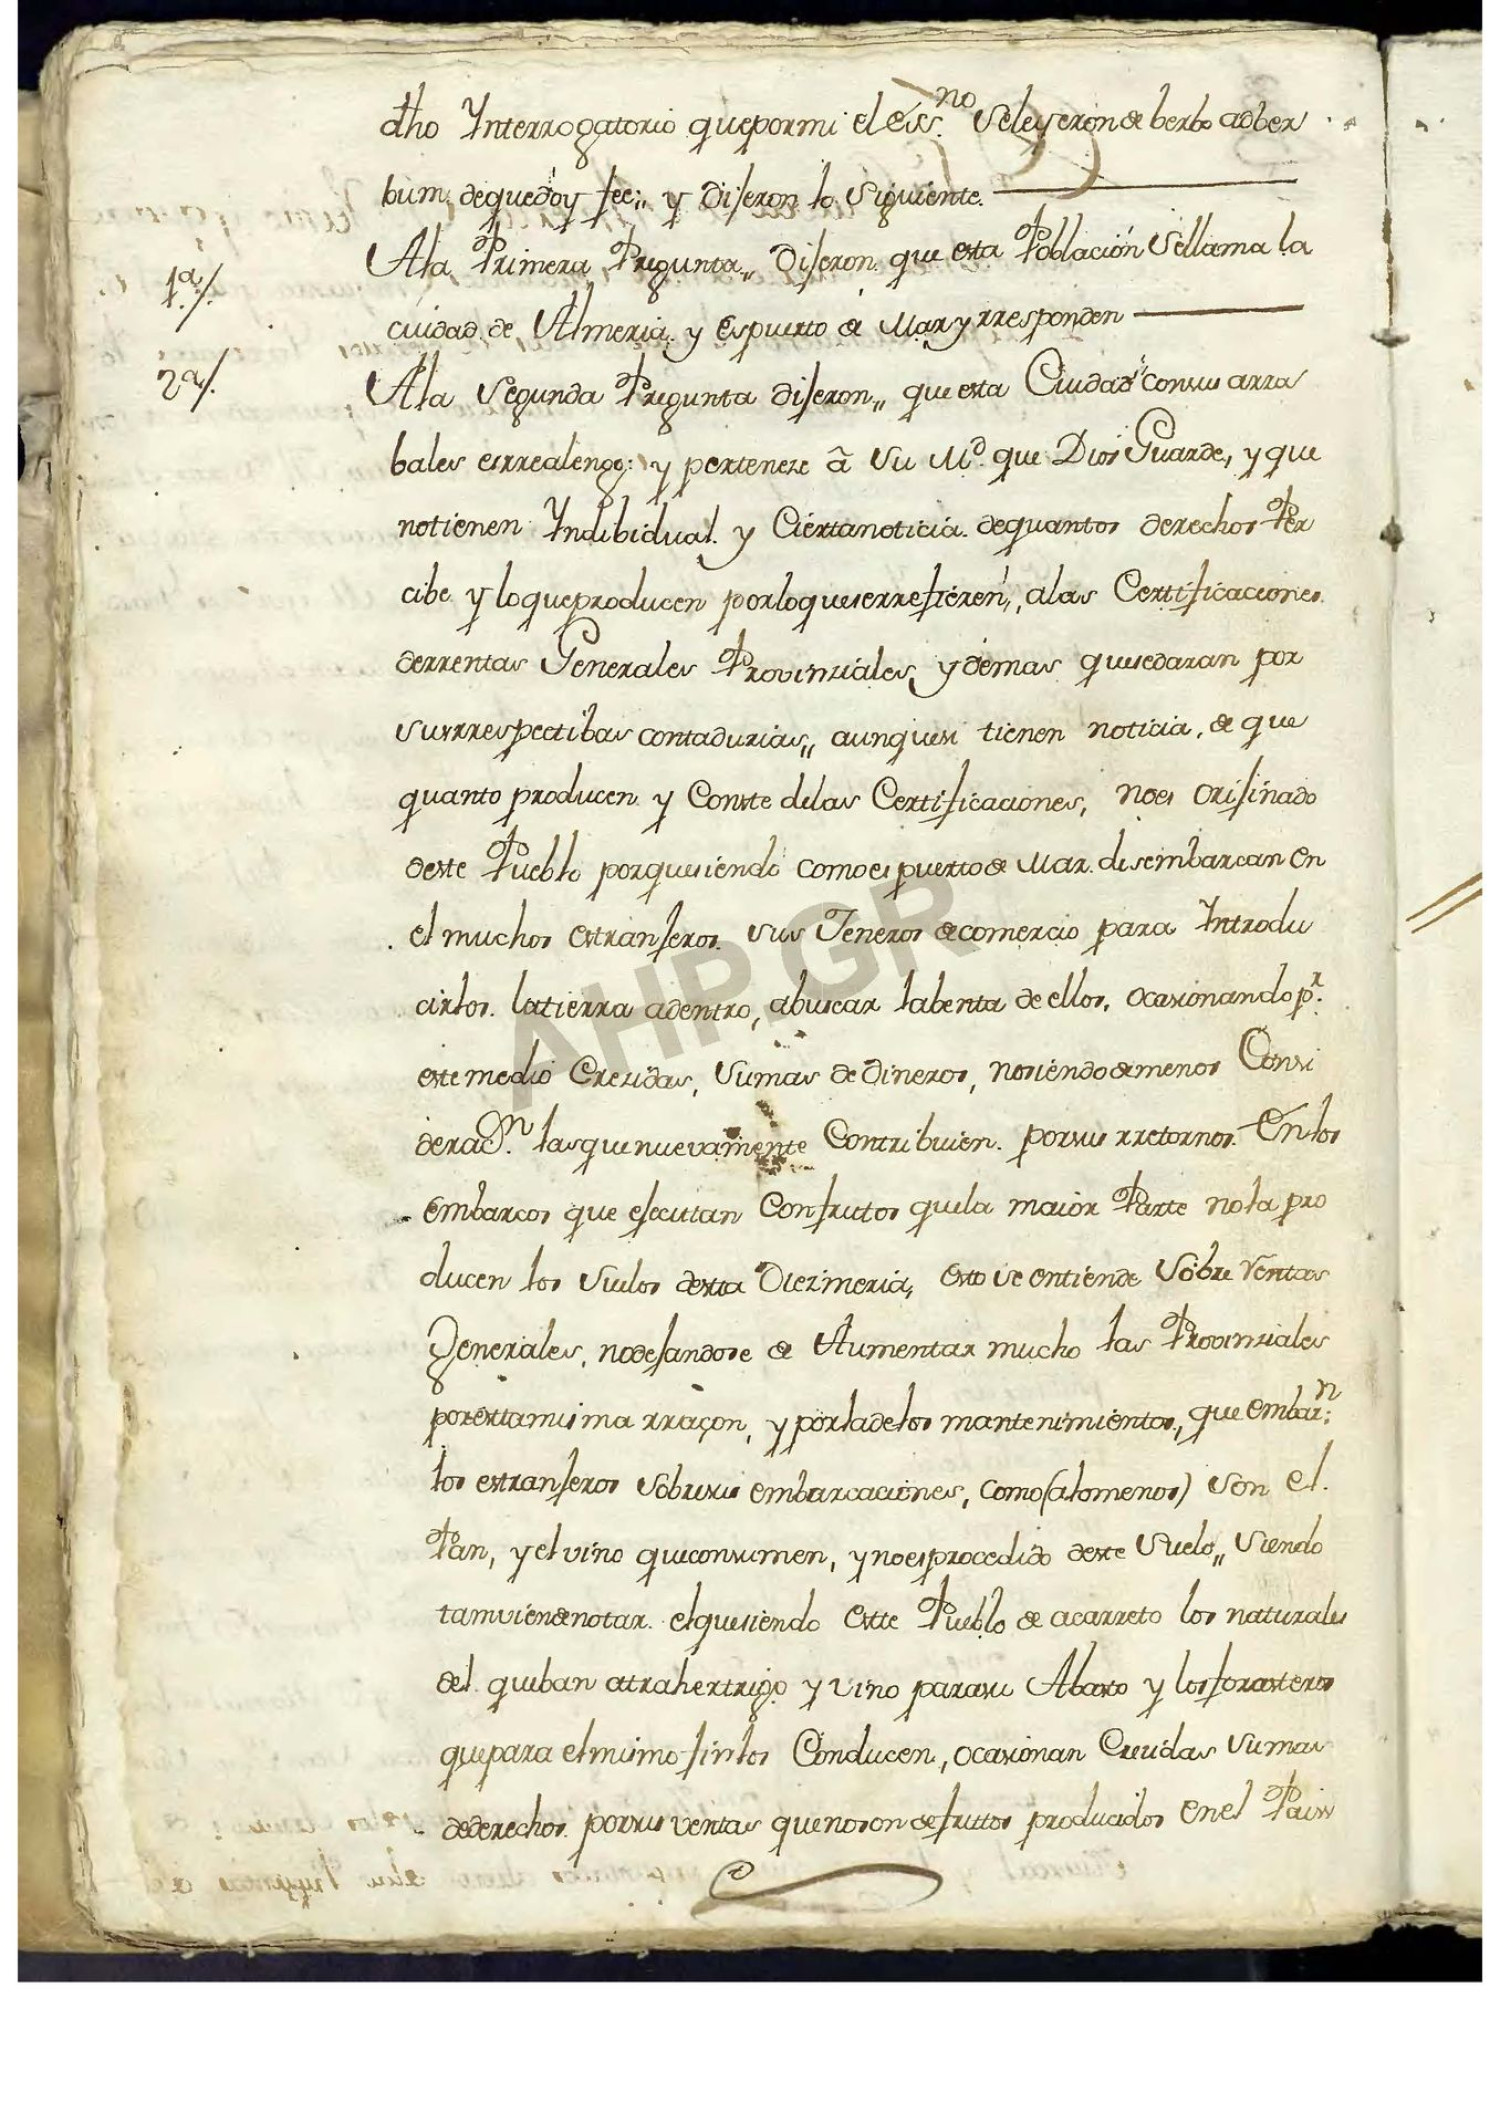 dho Ynterrogatorio que por mi el Ess.no se leyeron de berbo ad ber
bum, de que doy fee,, y dijeron lo siguiente.
1ª/. A la Primera Pregunta,, Dijeron que esta Población se llama la
ciudad de Almeria, y es puerto de Mar y rresponden
2ª/. A la Segunda Pregunta dijeron,, que esta Ciudad con sus arra
bales es rrealengo: y perteneze â su M.d que Dios Guarde, y que
no tienen Yndibidual y Cierta noticia de quantos derechos Per
cibe y lo que producen por lo que se rrefieren,, a las Certificaciones
de rrentas Generales Provinziales, y demas que se daran por
sus rrespectibas contadurias,, aunque si tienen noticia, de que
quanto producen y Conste de las Certificaciones, no es orijinado
deste Pueblo porque siendo como es puerto de Mar disembarcan en
el muchos estranjeros sus Jeneros de comercio para Yntrodu
cirlos la tierra adentro, a buscar la benta de ellos, ocasionando p.r
este medio Crezidas, sumas de dineros, no siendo de menos Consi
derac.n las que nuevamente Contribuien por sus rretornos En los
embarcos que ejecutan Con frutos que la maior Parte no la pro
ducen los suelos desta Diezmeria, esto se entiende sobre rentas
Jenerales, no dejandose de Aumentar mucho las Provinziales
por esta misma rraçon, y por la de los mantenimientos, que embar.n
los estranjeros sobre sus embarcaciones, como (a lo menos) son el
Pan, y el vino que consumen, y no es procedido deste suelo,, siendo
tamvien de notar el que siendo este Pueblo de acarreto los naturales
del que ban atraher trigo y vino para su Abasto y los forasteros
que para el mismo fin los Conducen, ocasionan Crezidas sumas
de derechos por sus ventas que no son de fruttos producidos en el Pais
AHP.GR